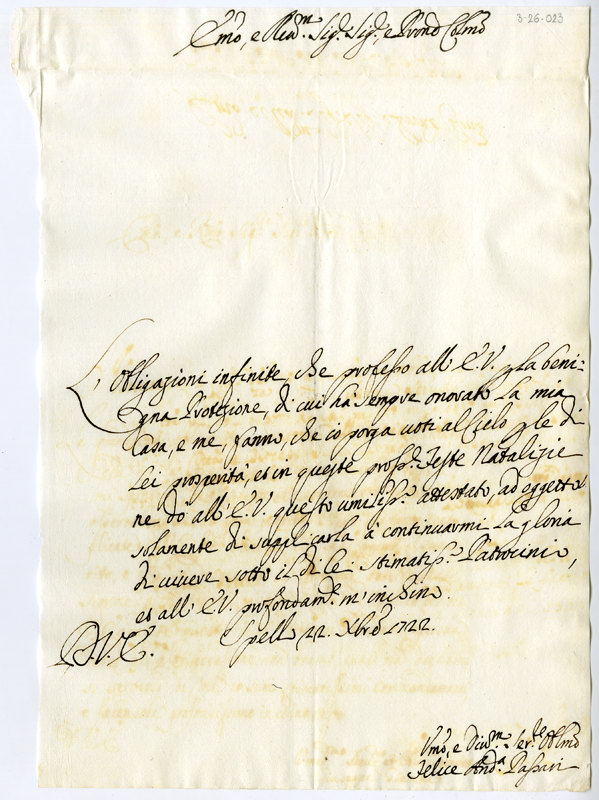 3-26-023
Emo, e Revm. Sigr. Sigr., e Prone Colmo
L'obbligazioni infinite, che professo all' E.V. p la beni=
gna Protezione, di cui hà sempre onorato la mia
Casa, e me, fanno, che io porga voti al Cielo p le di
Lei prosperità, et in queste pross.e Feste Natalizie
ne dò all' E.V. questo umiliss.o attestato, ad oggetto
solamente di supplicarla à continuarmi la gloria
di vivere sotto il di Lei stimatiss.o Patrocinio,
et all' E.V. profondam.te m'inchino.
Spello 22. Xbre 1722.
D.V.E.
Umo, e Divm. Ser.re Oblmo
Felice And.a Passari